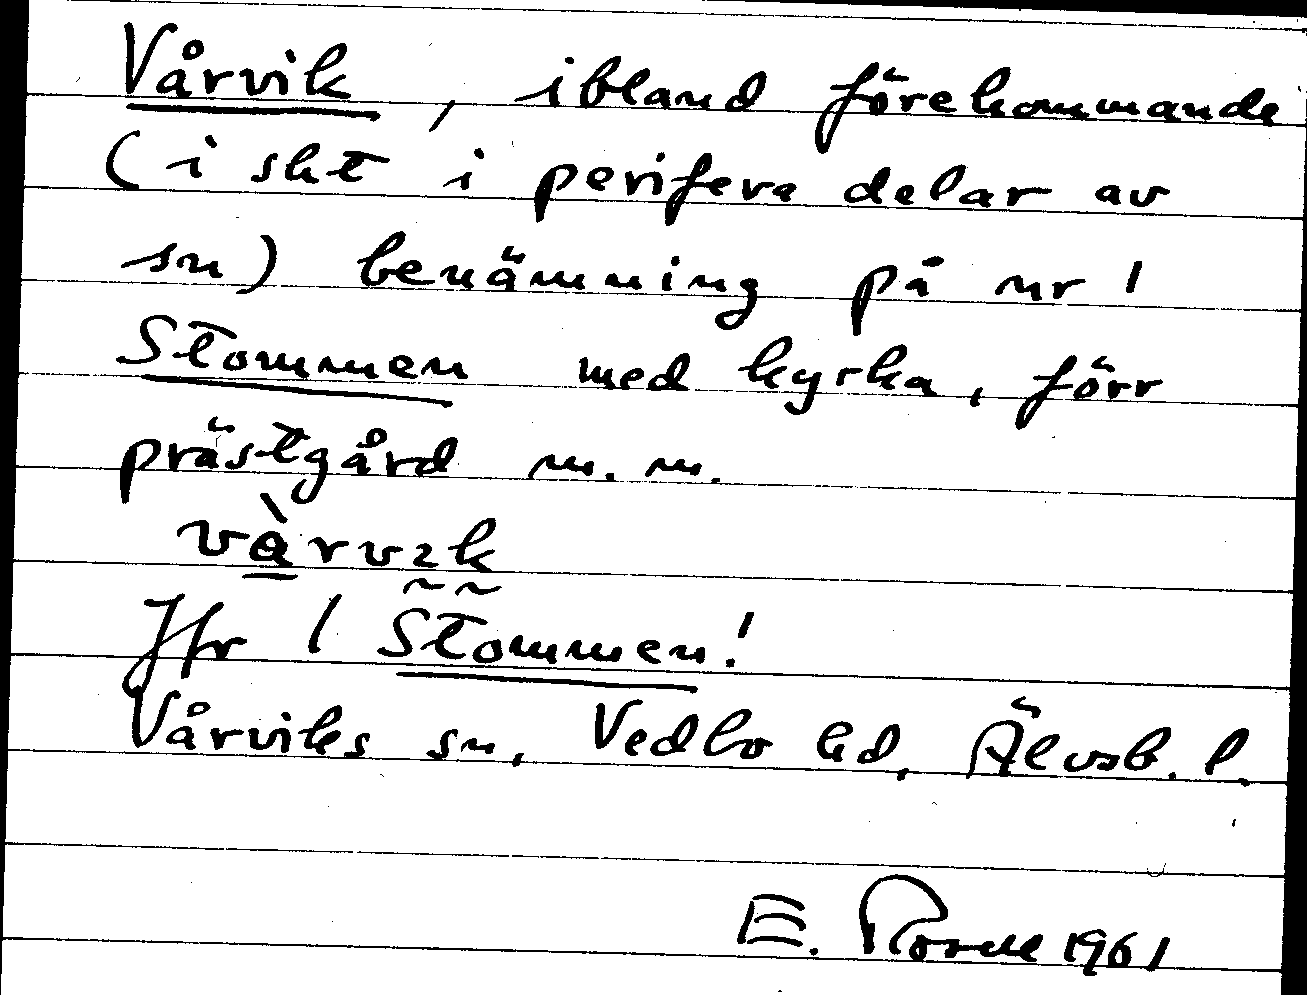 Vårvik, ibland förekommande
(i sht i perifera delar av
sn) benämning på nr 1
Stommen med kyrka, förr
prästgård m.m.
Jfr 1 Stommen!
Vårviks sn, Vedbo hd, Älvsb. l.
E. 1961